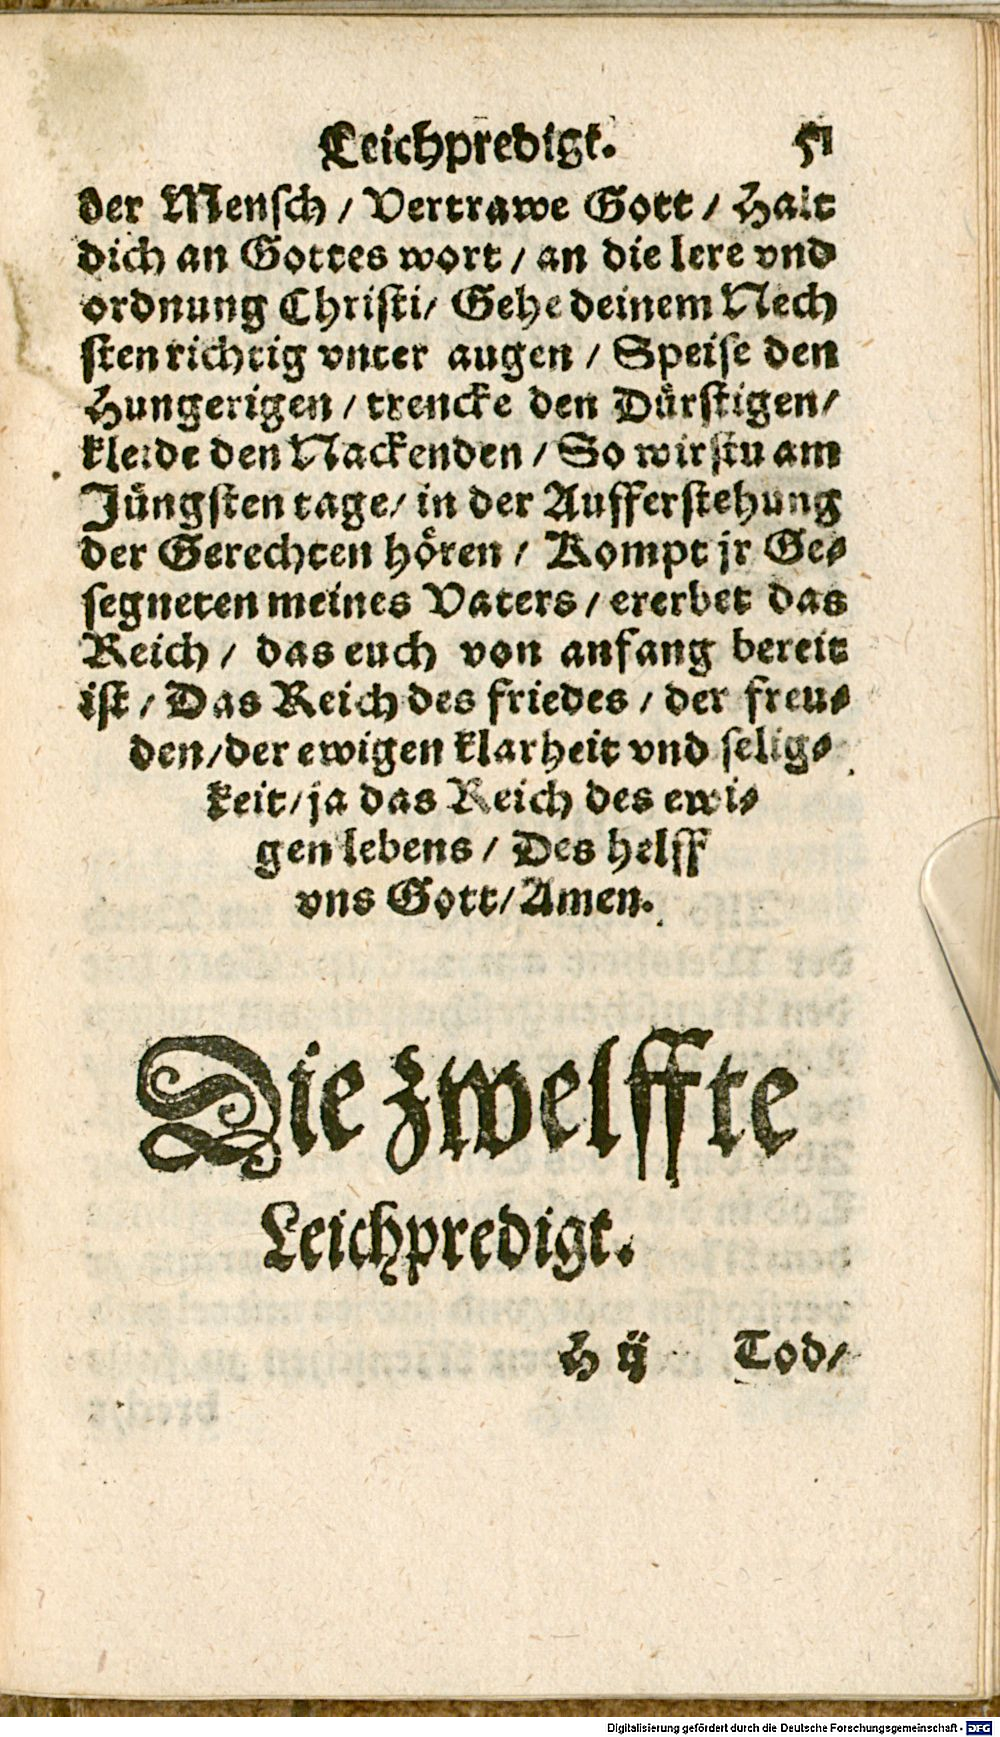 Leichpredigt. 51
der Mensch / Vertrawe Gott / Halt
dich an Gottes wort / an die lere vnd
ordnung Christi / Gehe deinem Nech
sten richtig vnter augen / Speise den
Hungerigen / trencke den Dürstigen /
kleide den Nackenden / So wirstu am
Jüngsten tage / in der Aufferstehung
der Gerechten hören / Kompt jr Ge-
segneten meines Vaters / ererbet das
Reich / das euch von anfang bereit
ist / Das Reich des friedes / der freu-
den / der ewigen klarheit vnd selig-
keit / ja das Reich des ewi-
gen lebens / Des helff
vns Gott / Amen.
Die zwelffte
Leichpredigt.
H ij Tod /
Digitalisierung gefördert durch die Deutsche Forschungsgemeinschaft - DFG